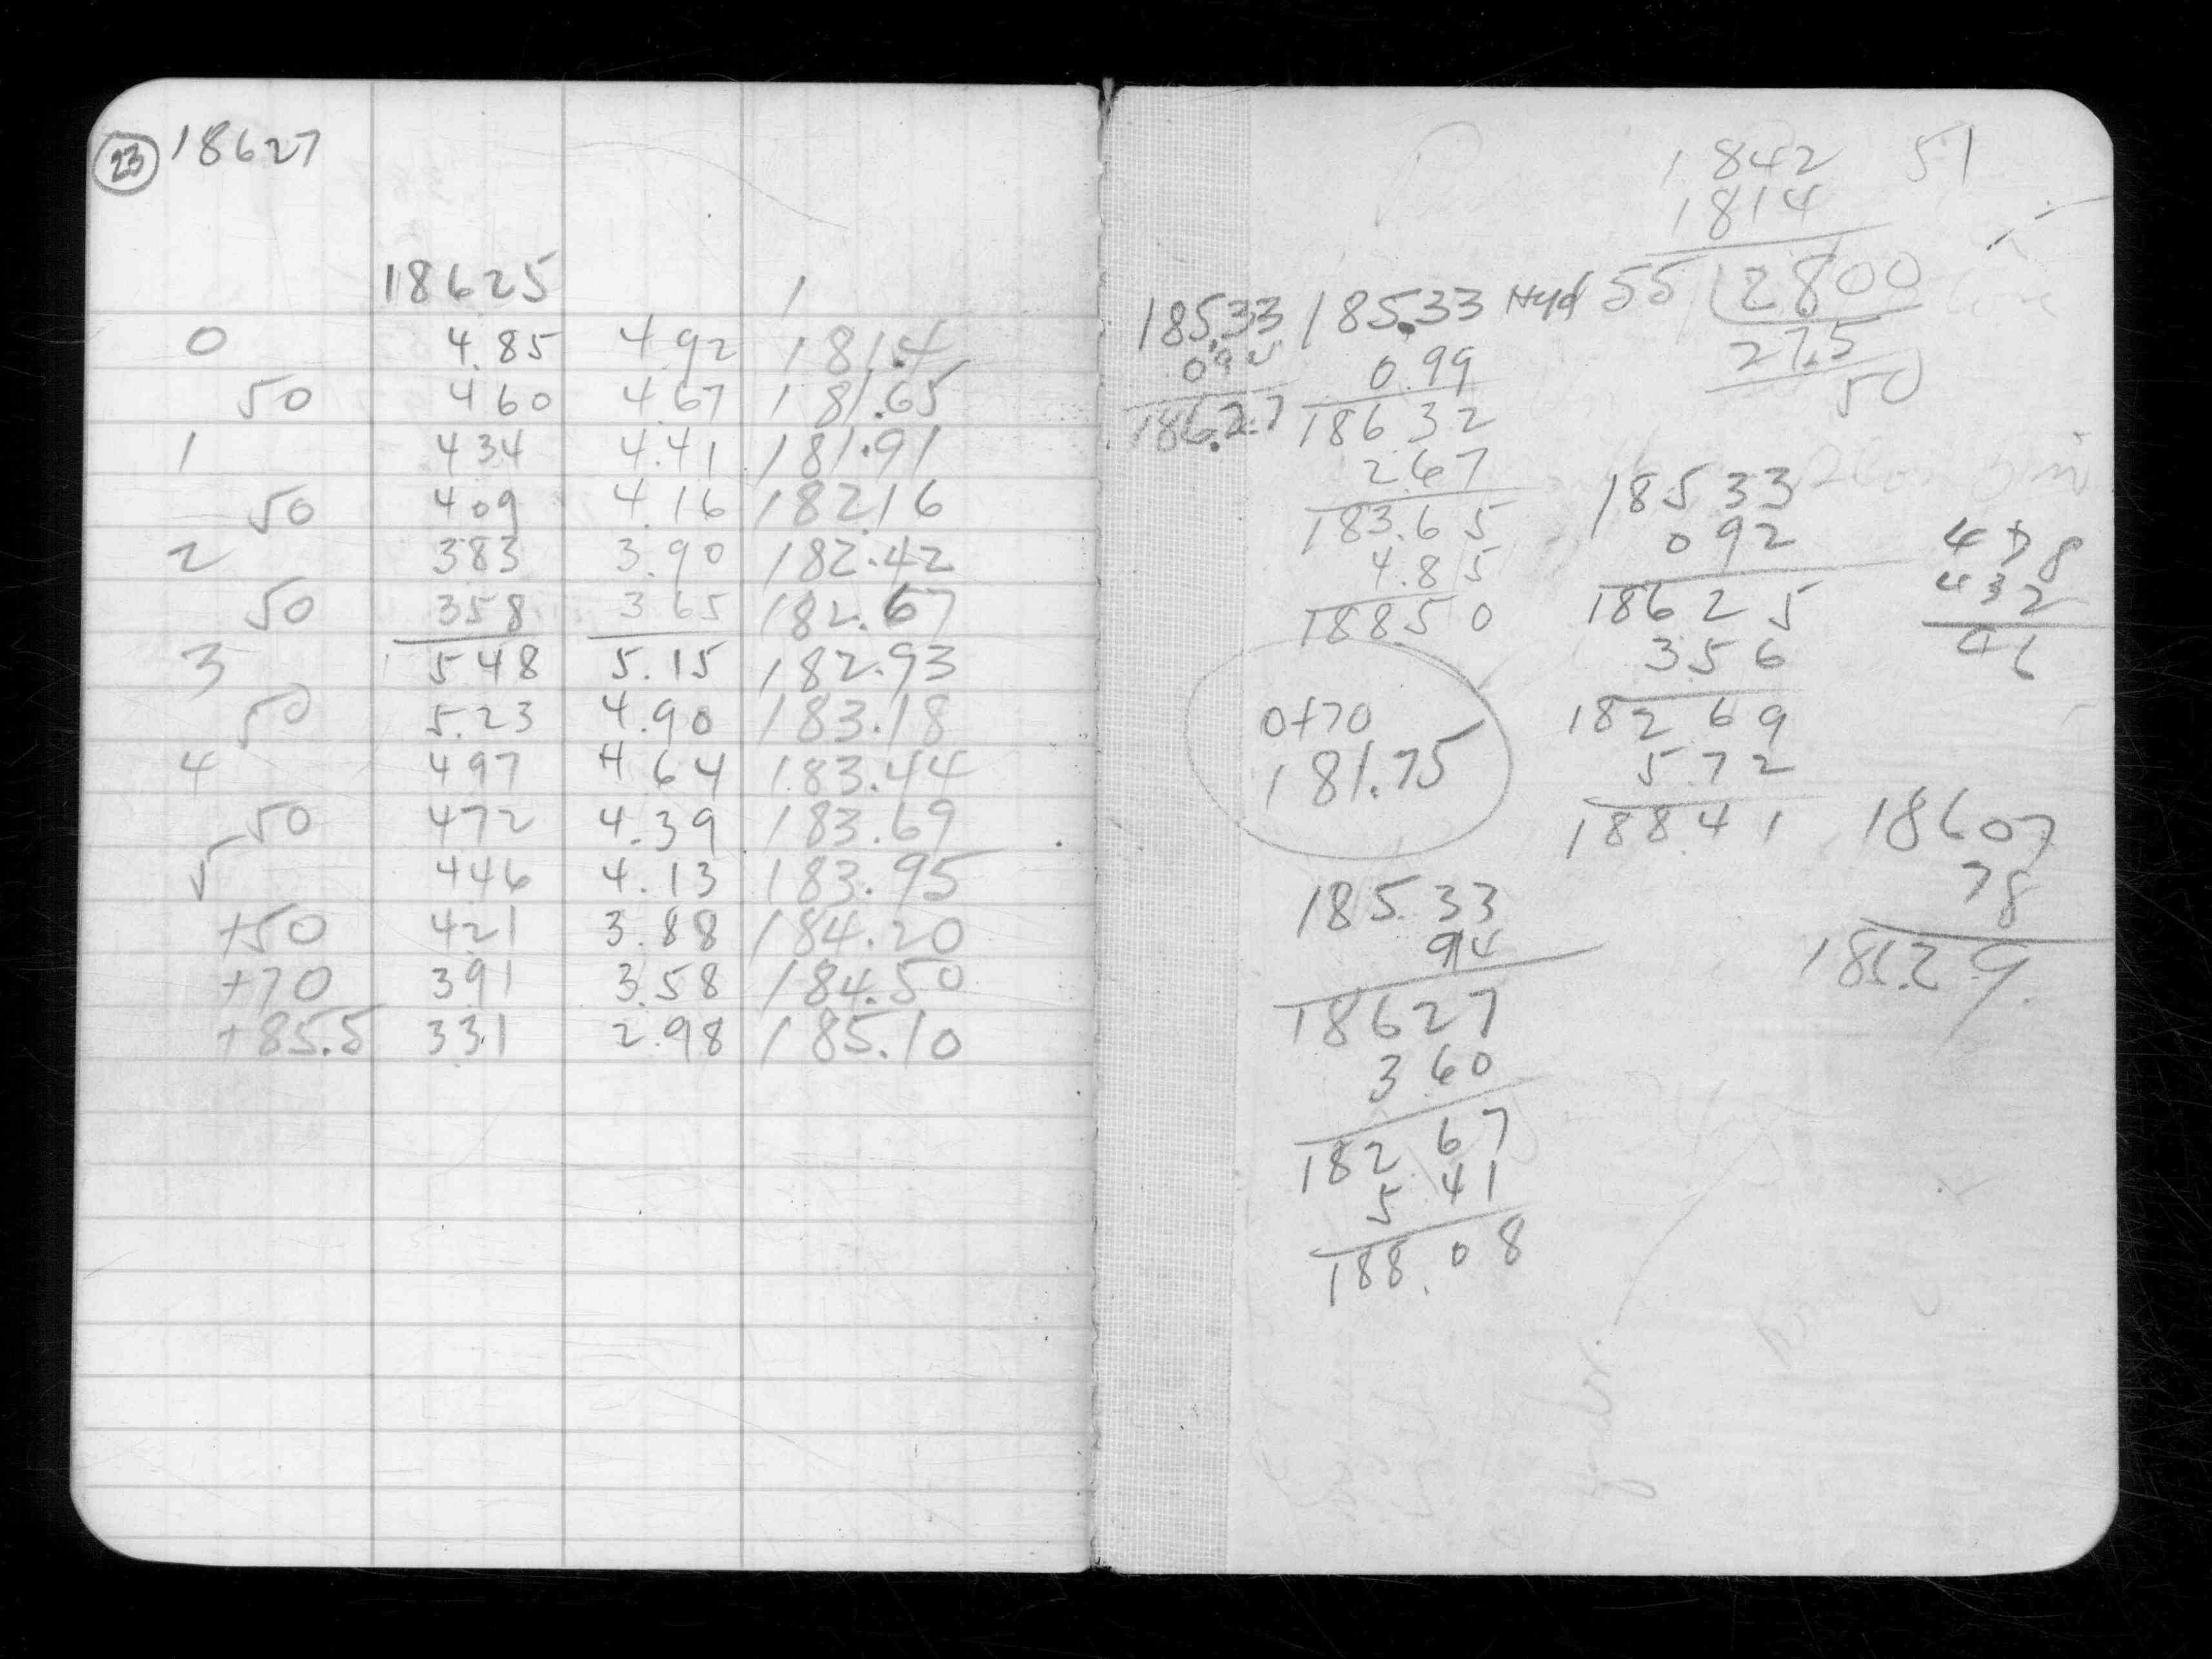 23 18627
18625
0 4.85 4.92 181.4
50 460 4.67 181.65
1 434 4.41 181.91
50 409 4.16 182.16
2 383 3.90 182.42
50 358 3.65 182.67
3 548 5.15 182.93
50 5.23 4.90 183.18
4 497 4 64 183.44
50 472 4.39 183.69
5 446 4.13 183.95
+50 421 3.88 184.20
+70 391 3.58 184.50
+85.5 331 2.98 185.10
1842 51
1814
55 2800
27.5
50
185.33
094
186.27
185.33 Hyd
0.99
186 32
2.67
183.65
4.85
188 50
0+70
181.75
185 33
0 92
186 25
3 56
182 69
5 72
188.41
478
432
46
18607
78
185.33
94
18627
3 60
182.67
5 41
188.08